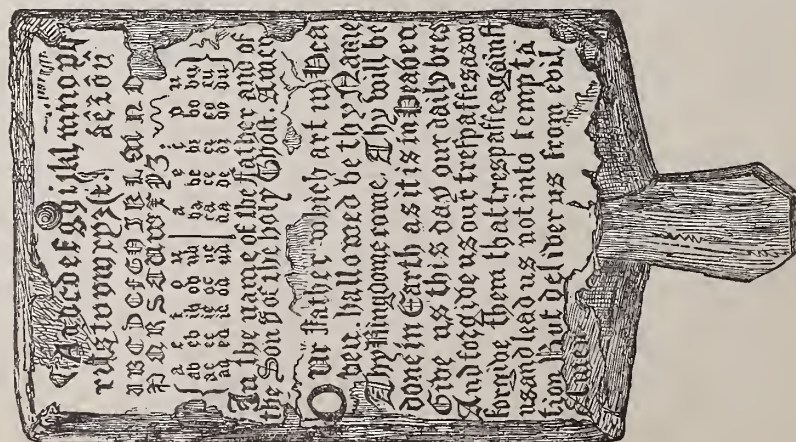 Aabcdefghijklmnopq
rstuvwxyz &c. áéíóú
ABCDEFGHIKLMNO
PQRSTUVWXYZ
a e i o u | a e i o u
ab eb ib ob ub | ba be bi bo bu
ac ec ic oc uc | ca ce ci co cu
ad ed id od ud | da de di do du
In the name of the Father and of
the Son & of the holy Ghost. Amen
Our Father which art in Hea
ven, hallowed be thy Name
Thy Kingdome come, Thy will be
done in Earth as it is in Heaven
Give us this day our daily bred
And forgive us our trespasses as w
forgive them that trespasse against
us and lead us not into tempta
tion but deliver us from evil
Amen